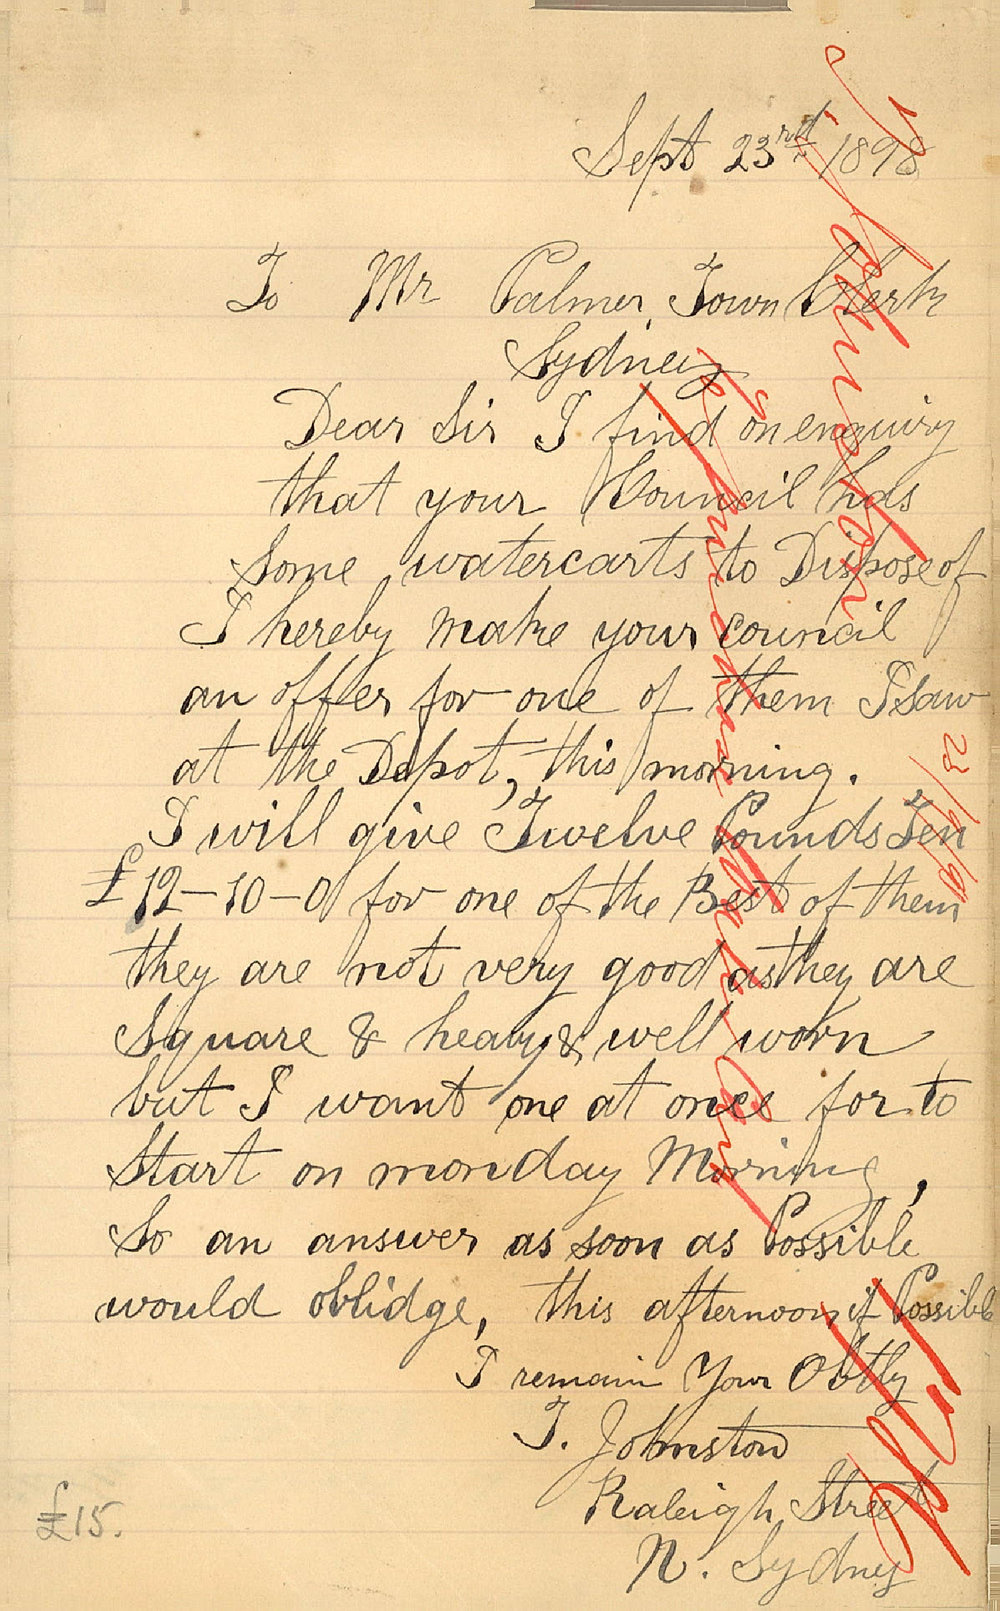 Sept 23rd 1898
To Mr Palmer, Town Clerk
Sydney
Dear Sir I find on enquiry
that your Council has
some watercarts to Dispose of
I hereby make your council
an offer for one of them I saw
at the Depot, this morning.
I will give Twelve Pounds Ten
£12-10-0 for one of the Best of them
they are not very good as they are
Square & heavy & well worn
but I want one at once for to
Start on monday Morning,
So an answer as soon as Possible
would oblidge, this afternoon if Possible
I remain Your Obtly
T. Johnston
Raleigh Street
N. Sydney
£15.
T Johnston
re purchase Water Cart
23/9/98